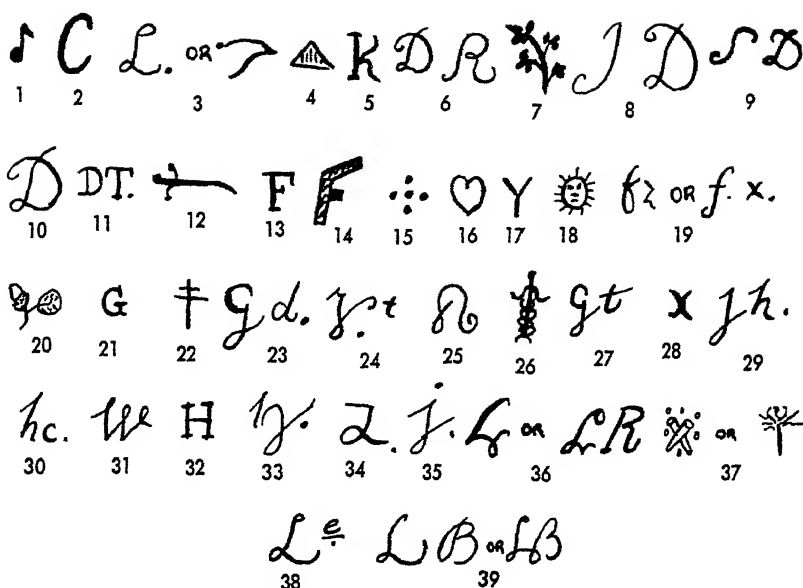 C L. OR K D R J D S D
1 2 3 4 5 6 7 8 9
D DT. F F Y f OR f. x.
10 11 12 13 14 15 16 17 18 19
G G d. t G t X J h.
20 21 22 23 24 25 26 27 28 29
hc. W H j. L OR L R OR
30 31 32 33 34 35 36 37
L e L B OR LB
38 39